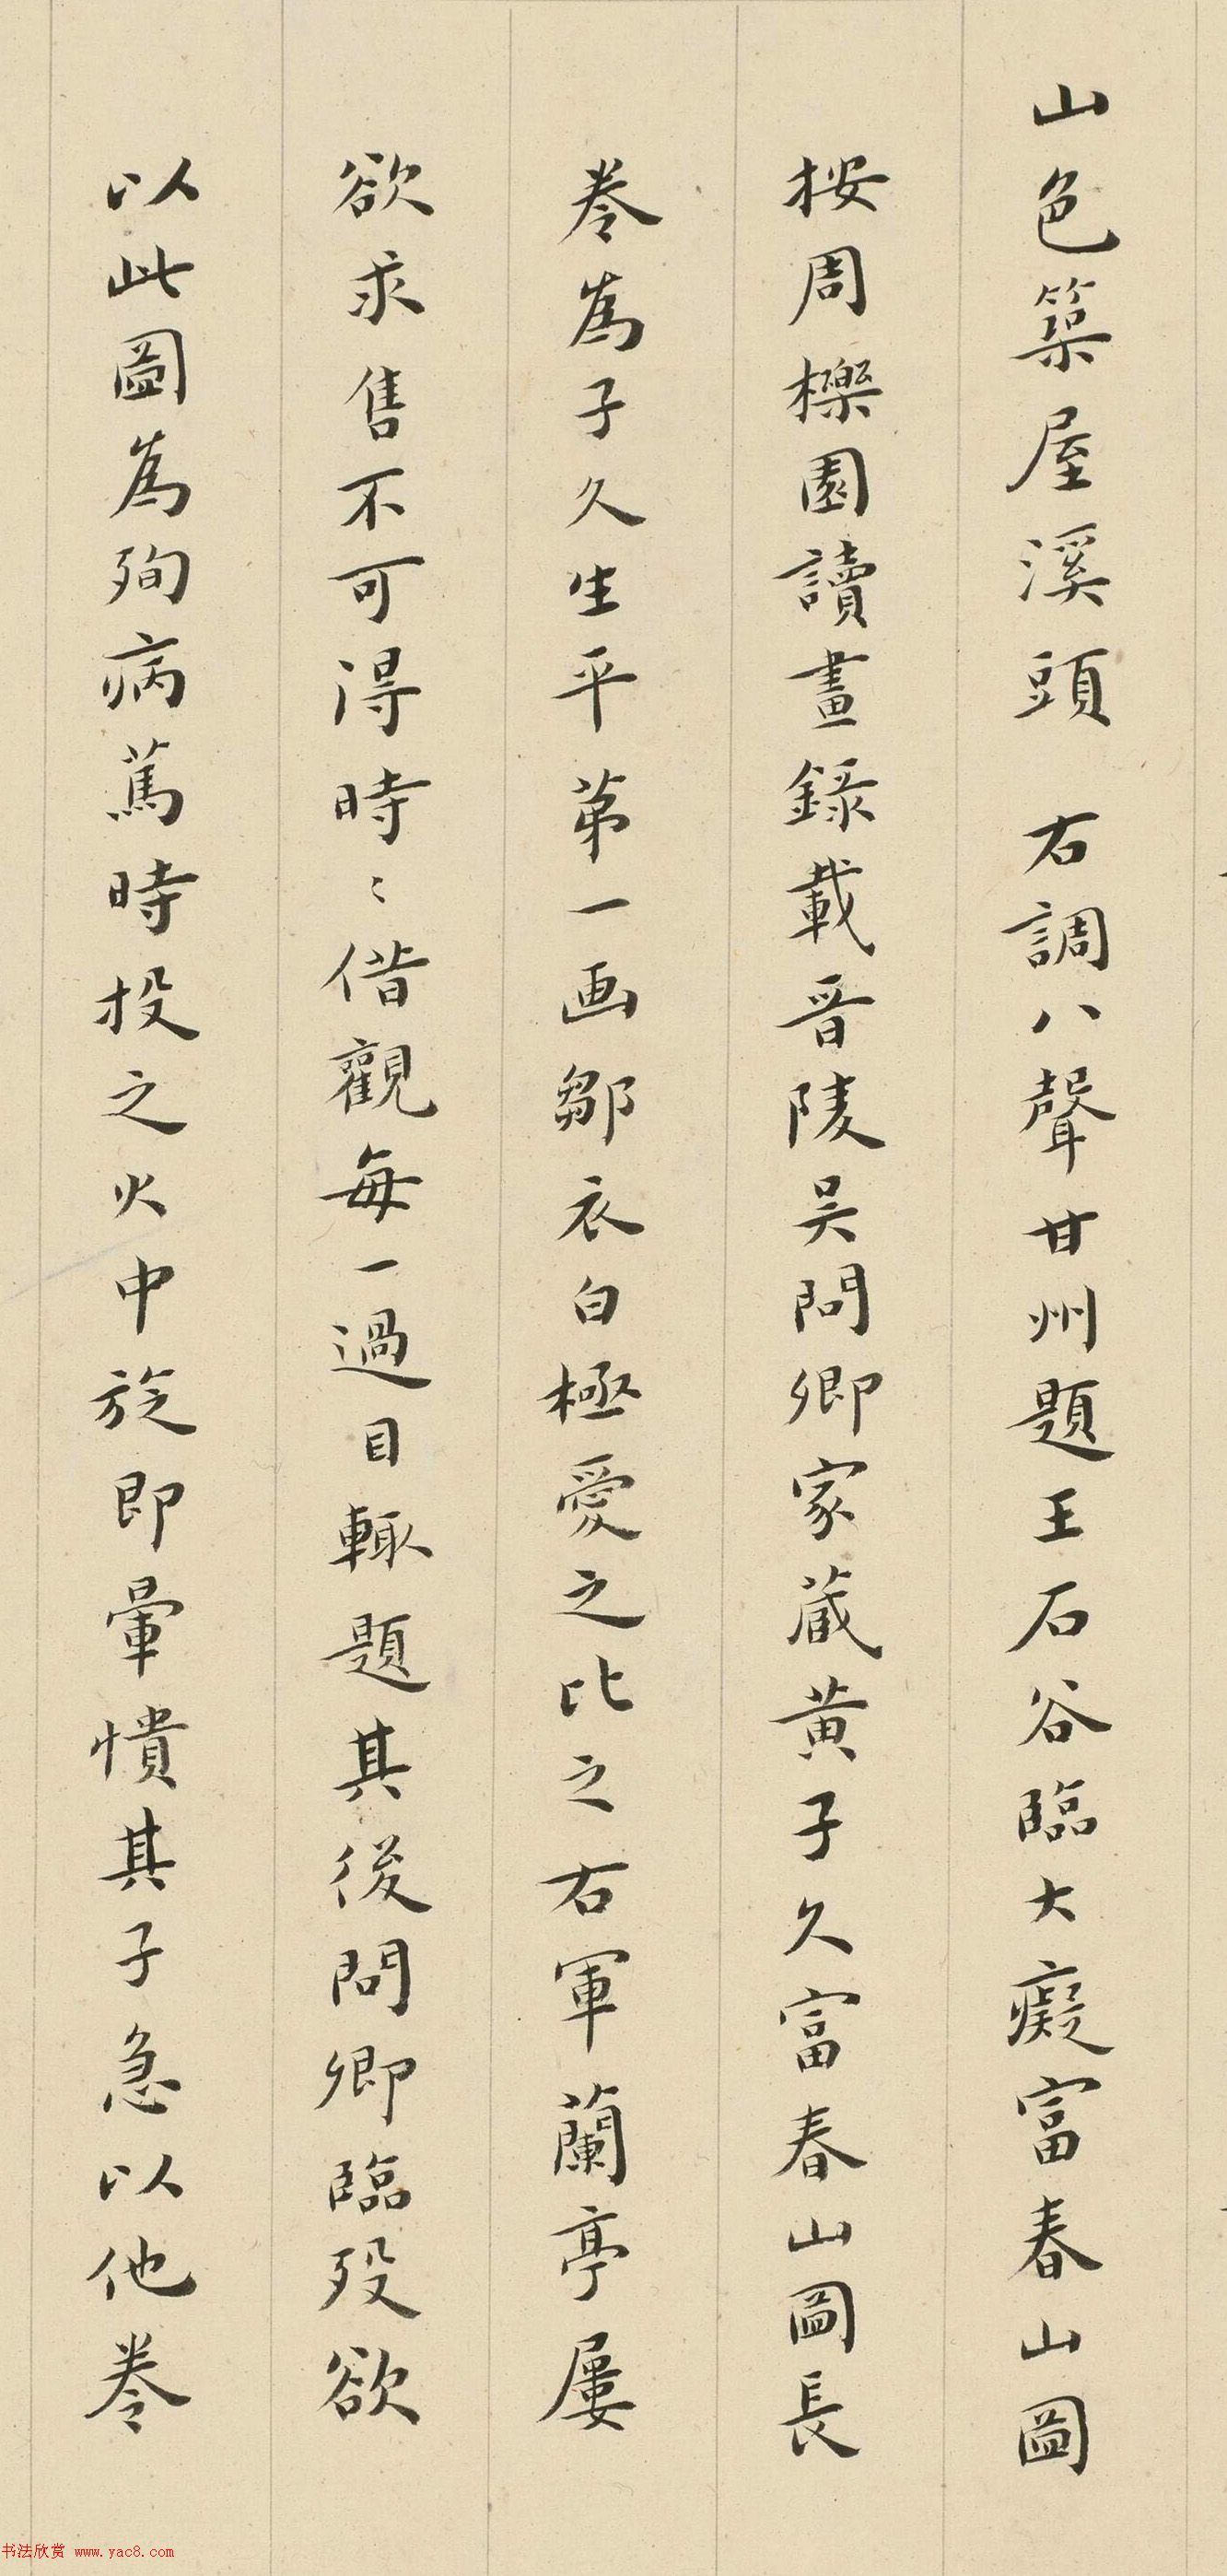 山色築屋溪頭 右調八聲甘州題王石谷臨大癡富春山圖
桉周櫟園讀畫錄載晉陵吴問卿家蔵黄子久富春山圖長
卷為子久生平苐一画鄒衣白極愛之比之右軍蘭亭屢
欲求售不可得時〻借觀每一過目輙題其後問卿臨歿欲
以此圖為殉病篤時投之火中旋即暈憒其子急以他卷
书法欣赏 www.yac8.com